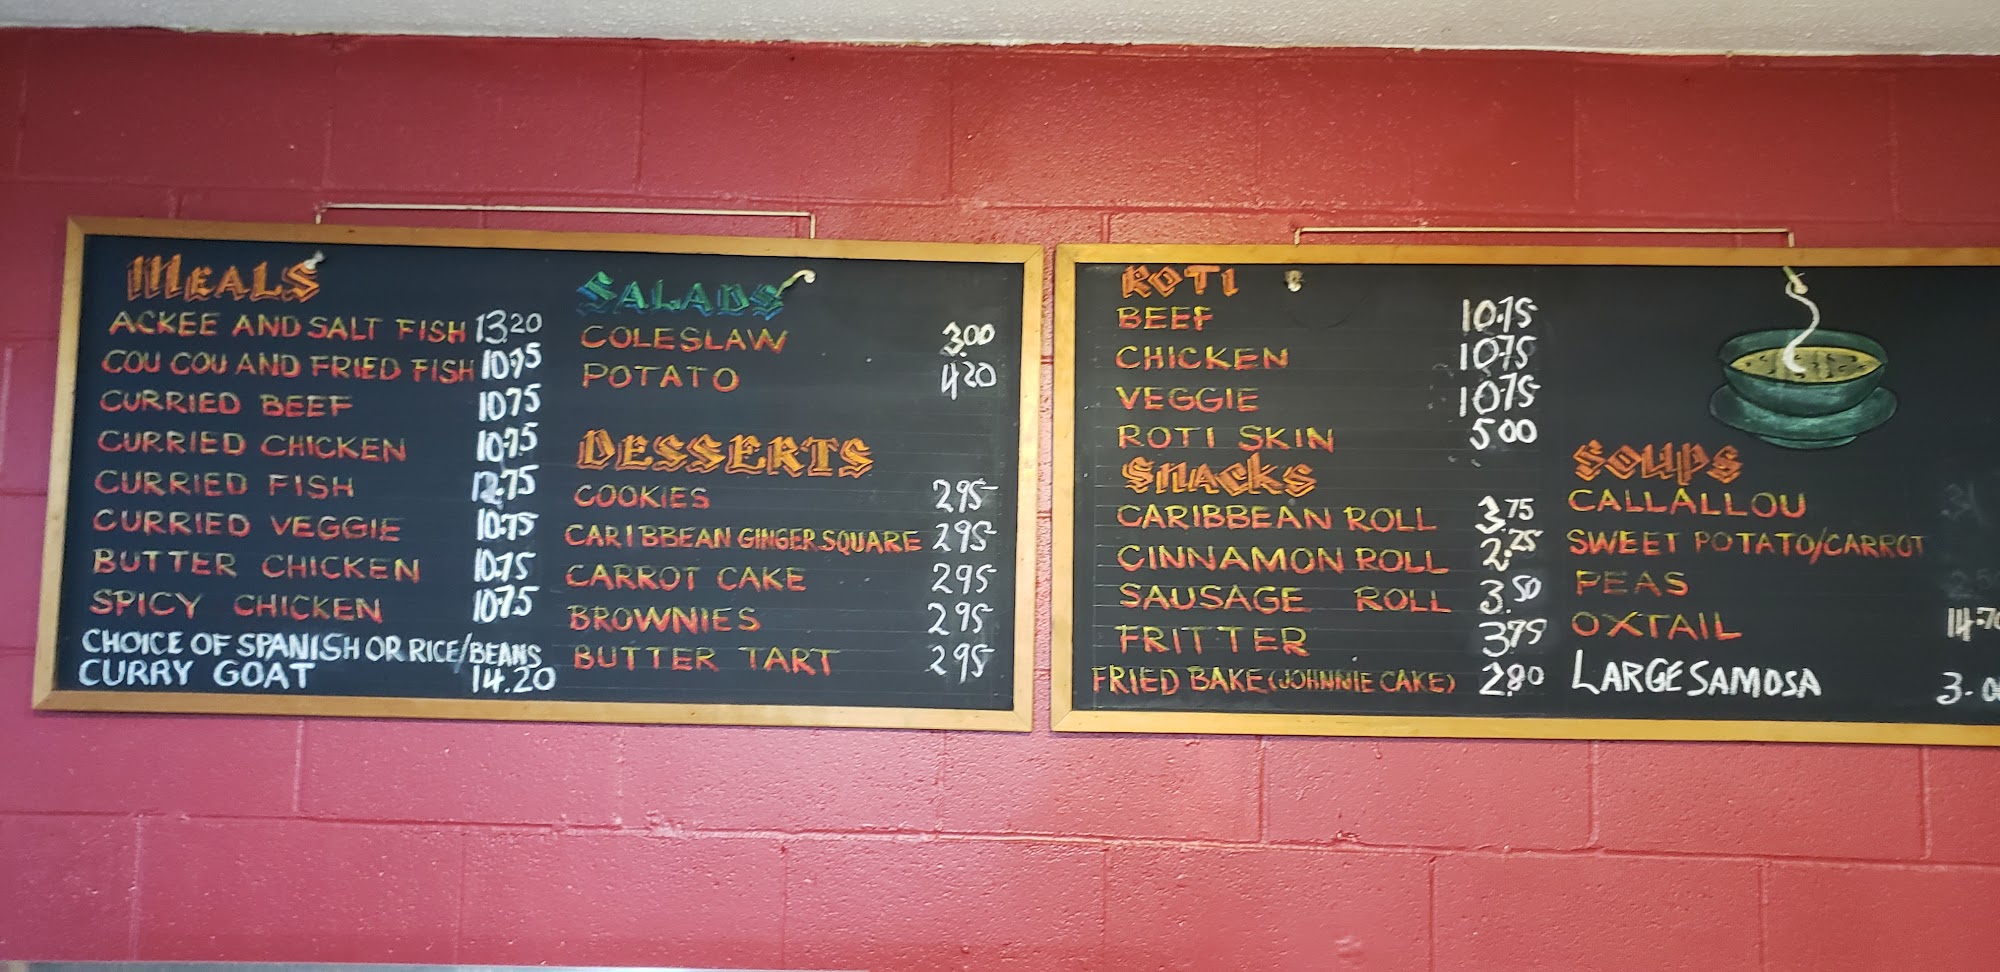 MEALS
ACKEE AND SALT FISH 13.20
COU COU AND FRIED FISH 10.75
CURRIED BEEF 1075
CURRIED CHICKEN 10.75
CURRIED FISH 12.75
CURRIED VEGGIE 10.75
BUTTER CHICKEN 10.75
SPICY CHICKEN 10.75
CHOICE OF SPANISH OR RICE/BEANS
CURRY GOAT 14.20
SALADS
COLESLAW 3.00
POTATO 4.20
DESSERTS
COOKIES 2.95
CARIBBEAN GINGER SQUARE 295
CARROT CAKE 295
BROWNIES 295
BUTTER TART 295
ROTI
BEEF 10.75
CHICKEN 10.75
VEGGIE 10.75
ROTI SKIN 5.00
SNACKS
CARIBBEAN ROLL 3.75
CINNAMON ROLL 2.25
SAUSAGE ROLL 3.50
FRITTER 3.75
FRIED BAKE (JOHNNIE CAKE) 2.80
SOUPS
CALLALLOU
SWEET POTATO/CARROT
PEAS
OXTAIL 14.70
LARGE SAMOSA 3.00